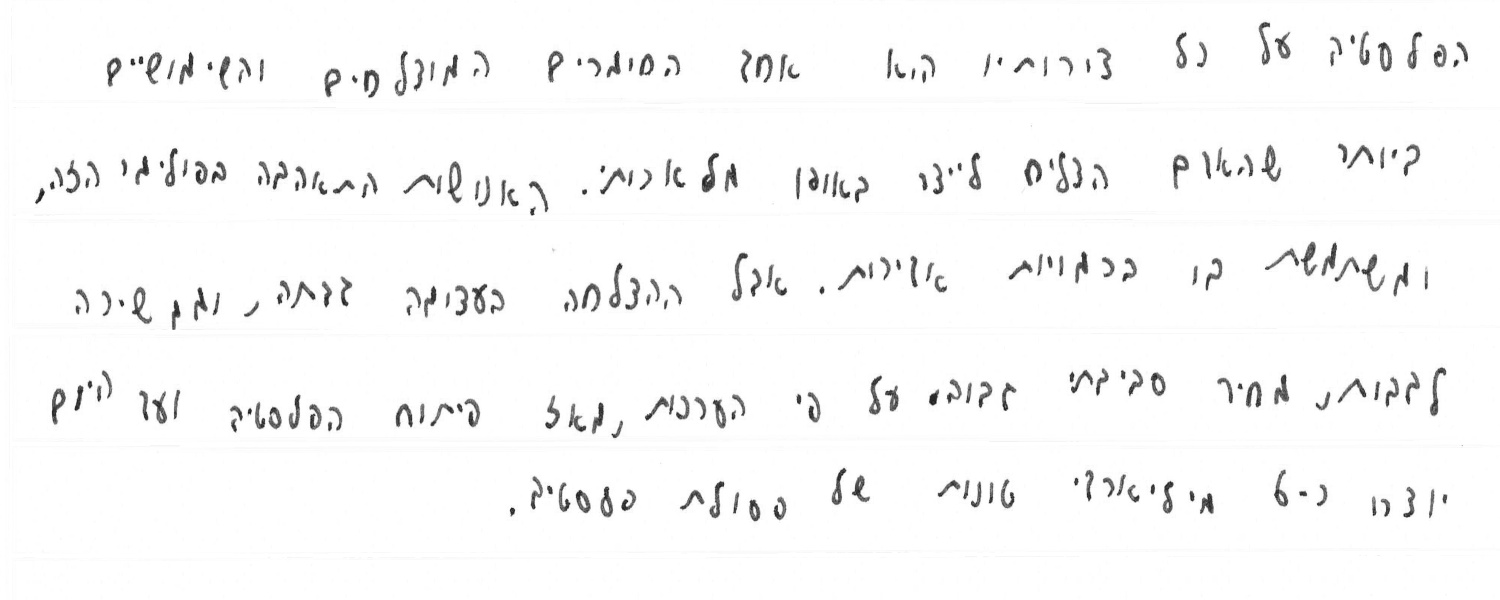 הפלסטיק על כל צורותיו הוא אחד החומרים המוצלחים והשימושיים
ביותר שהאדם הצליח לייצר באופן מלאכותי. האנושות התאהבה בפולימר הזה,
ומשתמשת בו בכמויות אדירות. אבל ההצלחה בעצומה גבתה, וממשיכה
לגבות, מחיר סביבתי גבוה. על פי הערכות, מאז פיתוח הפלסטיק ועד היום
יוצרו כ-6 מיליארדי טונות של פסולת פלסטיק.